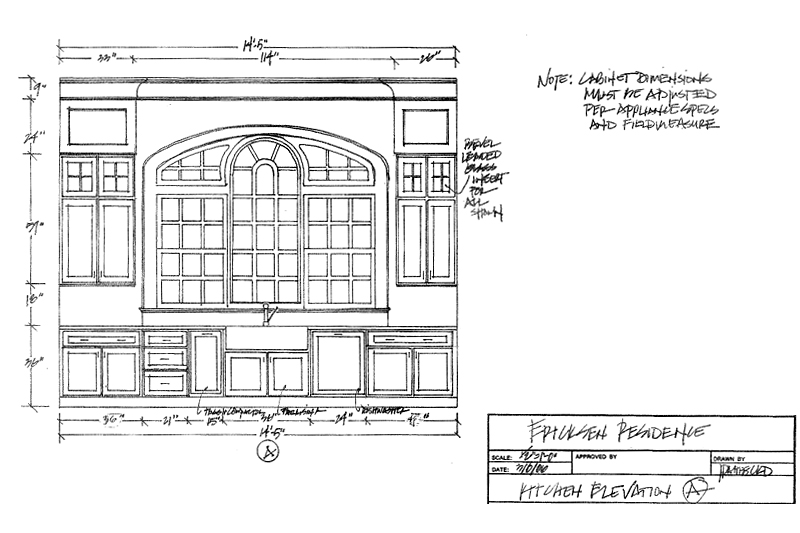 14'-5"
33" 114" 26"
9"
24"
18"
36"
NOTE: CABINET DIMENSIONS
MUST BE ADJUSTED
PER APPLIANCE SPECS
AND FIELD MEASURE
BEVEL
LEADED
GLASS
INSERT
FOR
ALL
SHOWN
TRASH COMPACTOR
DISHWASHER
36" 21" 15" 36" 24"
14'-5"
A
ERICKSEN RESIDENCE
SCALE:
APPROVED BY
DRAWN BY
DATE:
KITCHEN ELEVATION A